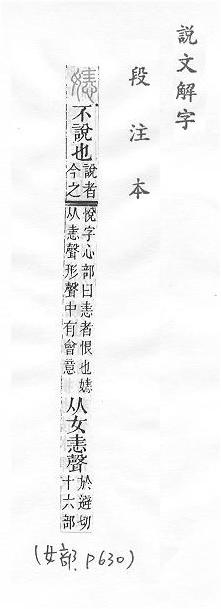 說文解字
段注本
嬺不說也說者今之悅字心部曰恚者恨也嬺从恚聲形聲中有會意从女恚聲於避切十六部
(女部.P630)